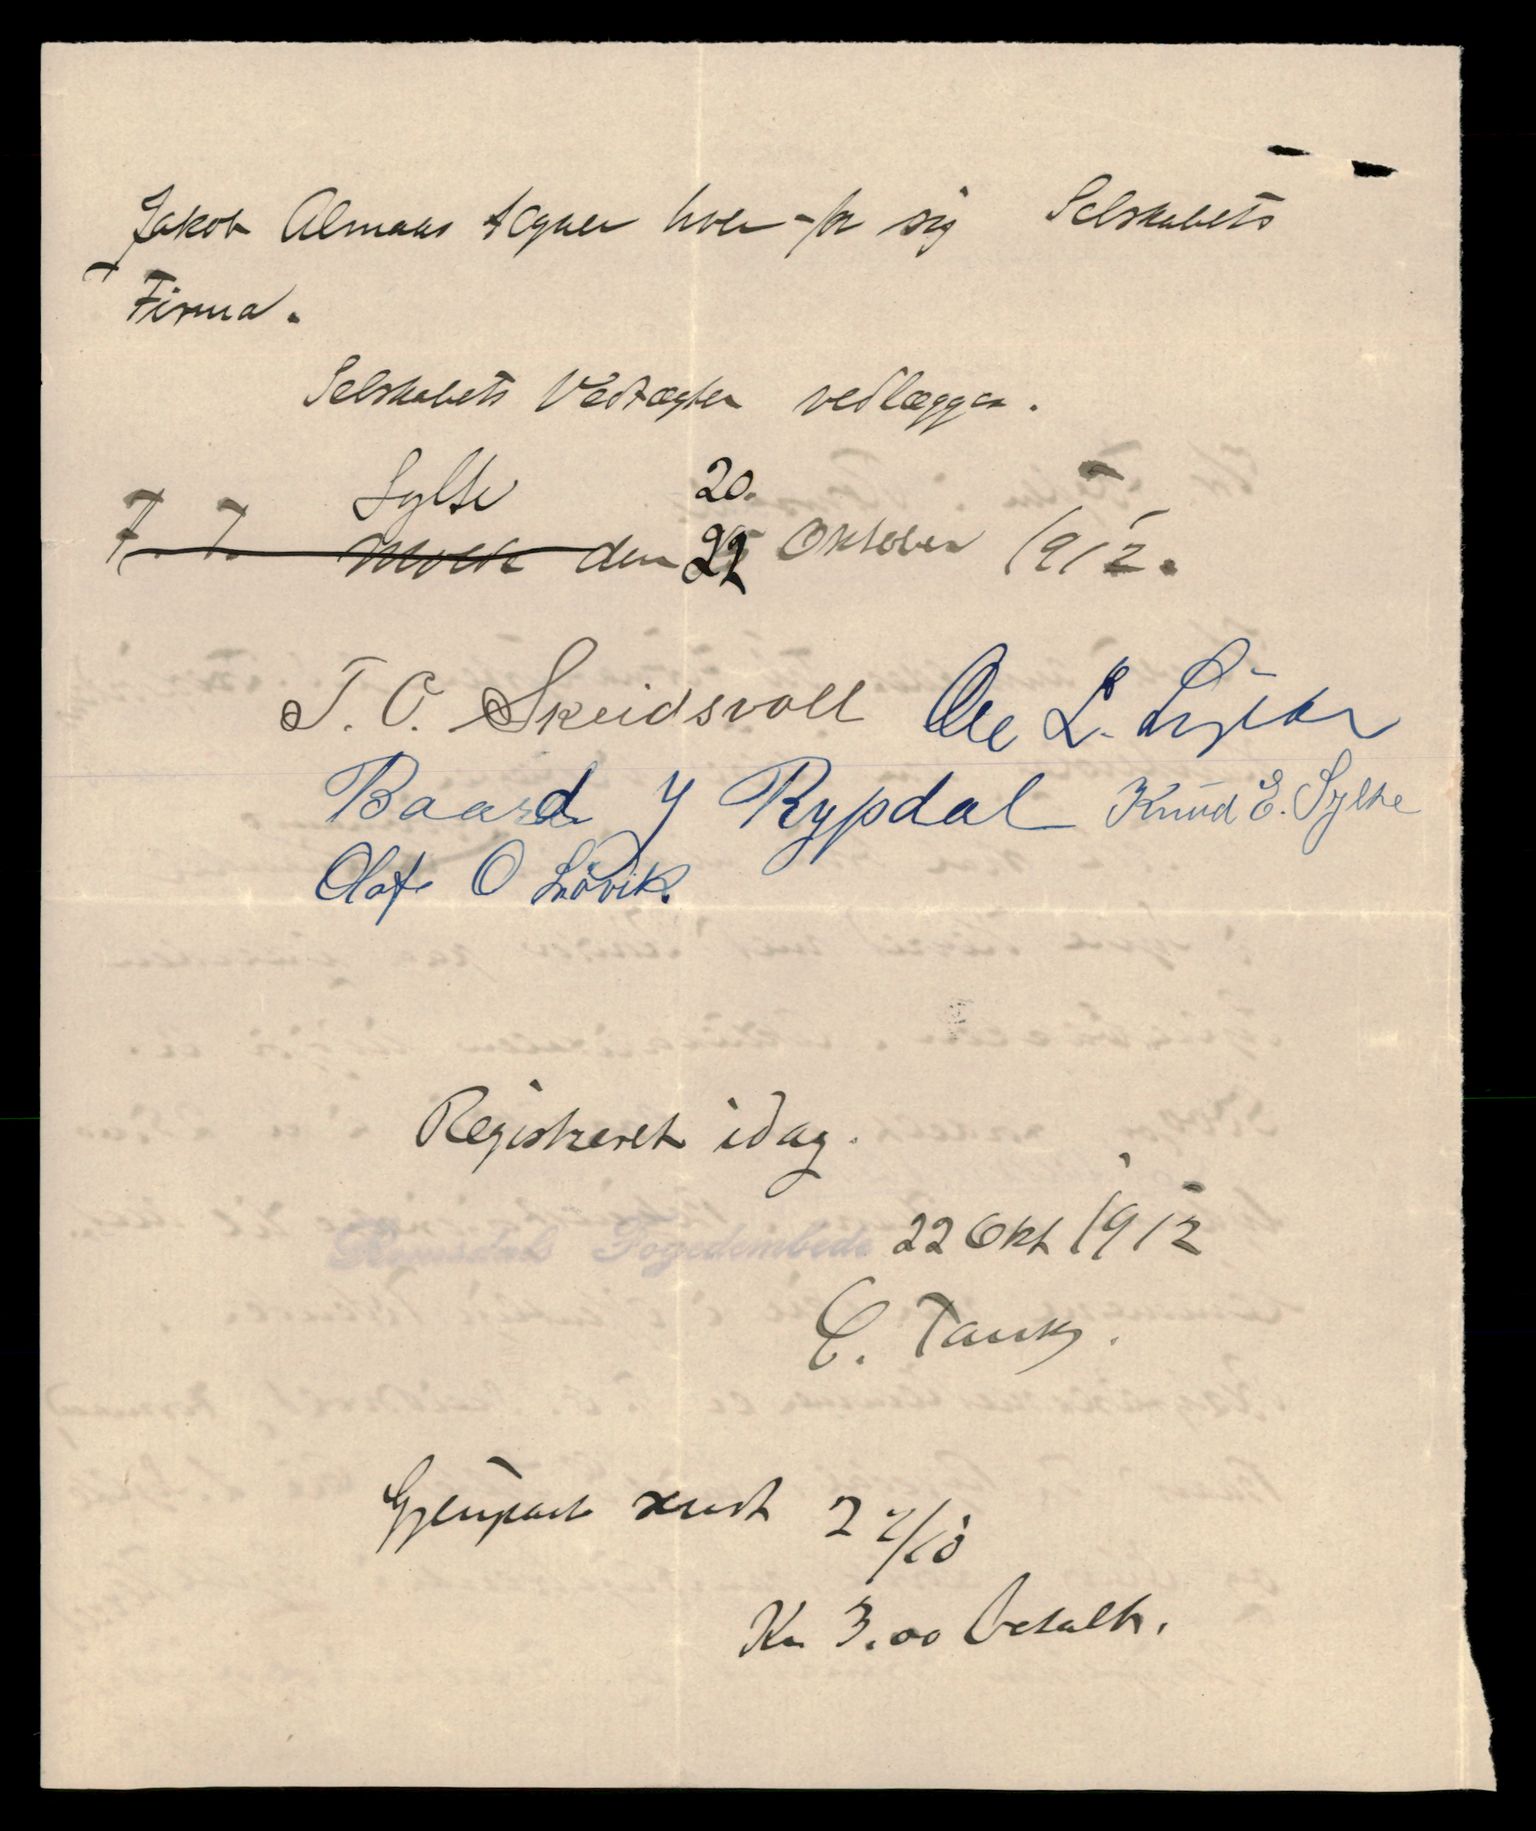 Jakob Almaas tegner hver for sig Selskabets
Firma.
Selskabets Vedtægter vedlægges.
Sylte 20.
T. T. Molde den 22 Oktober 1912.
T. O. Skeidsvoll Ole L. Sylte
Baard J Rypdal Knud E. Sylte
Olaf O Lovik.
Registreret idag.
Romsdals Fogedembede 22 Okt 1912
C. Tank.
Gjenpart sendt 22/10
Kr 3.00 betalt.